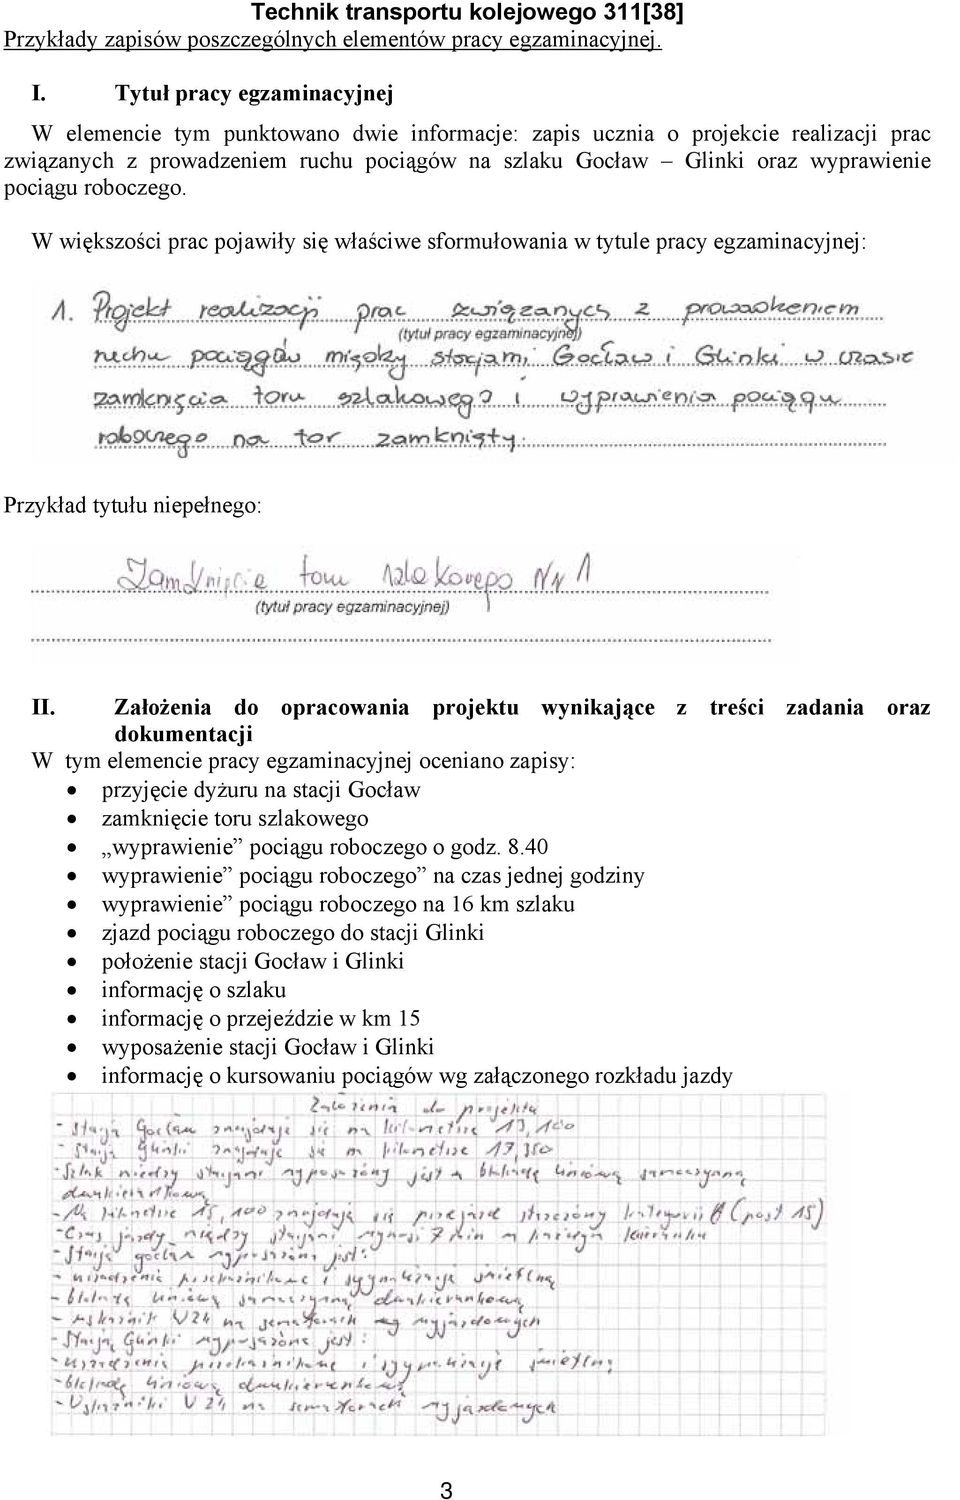 Technik transportu kolejowego 311[38]
Przykłady zapisów poszczególnych elementów pracy egzaminacyjnej.
I. Tytuł pracy egzaminacyjnej
W elemencie tym punktowano dwie informacje: zapis ucznia o projekcie realizacji prac
związanych z prowadzeniem ruchu pociągów na szlaku Gocław – Glinki oraz wyprawienie
pociągu roboczego.
W większości prac pojawiły się właściwe sformułowania w tytule pracy egzaminacyjnej:
1. Projekt realizacji prac związanych z prowadzeniem
(tytuł pracy egzaminacyjnej)
ruchu pociągów między stacjami Gocław i Glinki w czasie
zamknięcia toru szlakowego i wyprawienia pociągu
roboczego na tor zamknięty.
Przykład tytułu niepełnego:
Zamknięcie toru szlakowego Nr 1
(tytuł pracy egzaminacyjnej)
II. Założenia do opracowania projektu wynikające z treści zadania oraz
dokumentacji
W tym elemencie pracy egzaminacyjnej oceniano zapisy:
• przyjęcie dyżuru na stacji Gocław
• zamknięcie toru szlakowego
• „wyprawienie” pociągu roboczego o godz. 8.40
• wyprawienie” pociągu roboczego” na czas jednej godziny
• wyprawienie” pociągu roboczego na 16 km szlaku
• zjazd pociągu roboczego do stacji Glinki
• położenie stacji Gocław i Glinki
• informację o szlaku
• informację o przejeździe w km 15
• wyposażenie stacji Gocław i Glinki
• informację o kursowaniu pociągów wg załączonego rozkładu jazdy
Założenia do projektu
- Stacja Gocław znajduje się na kilometrze 13,100
- Stacja Glinki znajduje się na kilometrze 19,350
- Szlak między stacjami wyposażony jest w blokadę liniową samoczynną
dwukierunkową
- Na kilometrze 15,100 znajduje się przejazd strzeżony kategorii A (post 15)
- Czas jazdy między stacjami wynosi 7 min w każdym kierunku
- Stacja Gocław wyposażona jest:
- urządzenia przekaźnikowe i sygnalizację świetlną
- blokadę liniową samoczynną dwukierunkową
- wskaźnik W24 na semaforach wyjazdowych
- Stacja Glinki wyposażona jest:
- urządzenia przekaźnikowe i sygnalizację świetlną
- blokadę liniową dwukierunkową
- Wskaźniki W24 na semaforach wyjazdowych
3